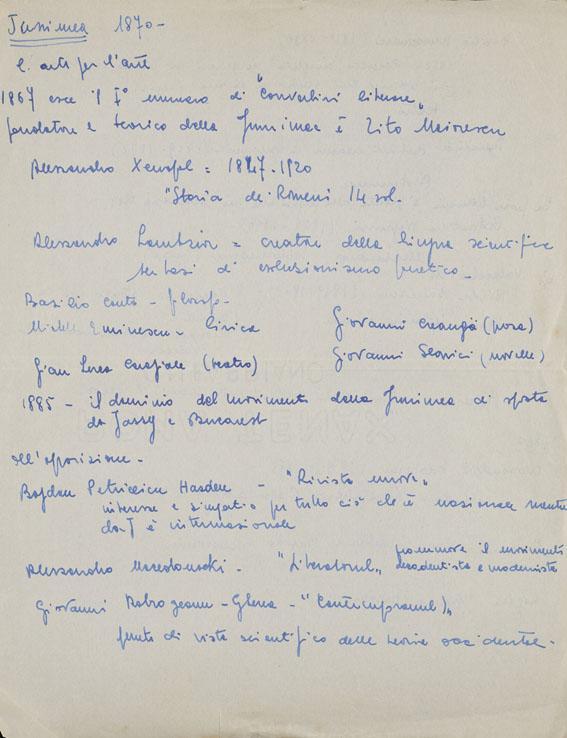 Junimea 1870-
l'arte per l'arte
1867 esce il I° numero di "Convorbiri literare"
fondatore e teorico della Junimea è Tito Maiorescu
Alessandro Xenopol = 1847-1920
"Storia dei Romeni 14 vol.
Alessandro Lambrior = creatore della lingua scientifica
su basi di esoluzionismo fonetico -
Basilio Conta - filosofo -
Michele Eminescu - lirica
Giovanni Creangă (prosa)
Gian Luca Caragiale (teatro)
Giovanni Slavici (novelle)
1885 - il dominio del movimento della Junimea si sposta
da Jassy a Bucarest
All'opposizione -
Bogdan Petriceicu Hasdeu - "Rivista nuova"
interesse e simpatia per tutto ciò che è nazionale mentre
da J è internazionale
Alessandro Macedonski - "Literatorul" promuove il movimento
decadentista e modernista
Giovanni Dobrogeanu-Gherea - "Contemporanul"
punto di vista scientifico delle teorie occidentali -